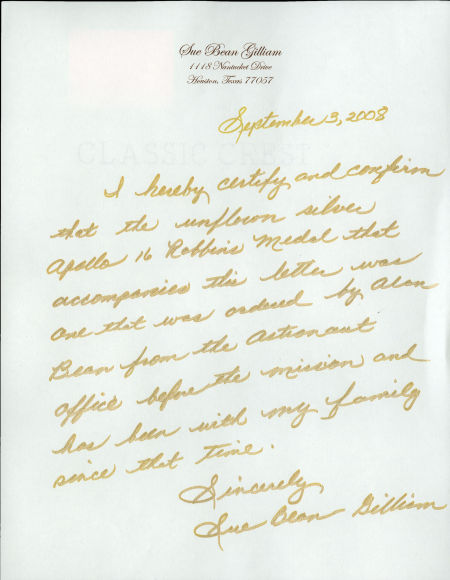 Sue Bean Gilliam
1118 Nantucket Drive
Houston, Texas 77057
September 3, 2008
CLASSIC CREST
I hereby certify and confirm
that the unflown silver
Apollo 16 Robbins Medal that
accompanies this letter was
one that was ordered by Alan
Bean from the Astronaut
office before the mission and
has been with my family
since that time.
Sincerely
Sue Bean Gilliam